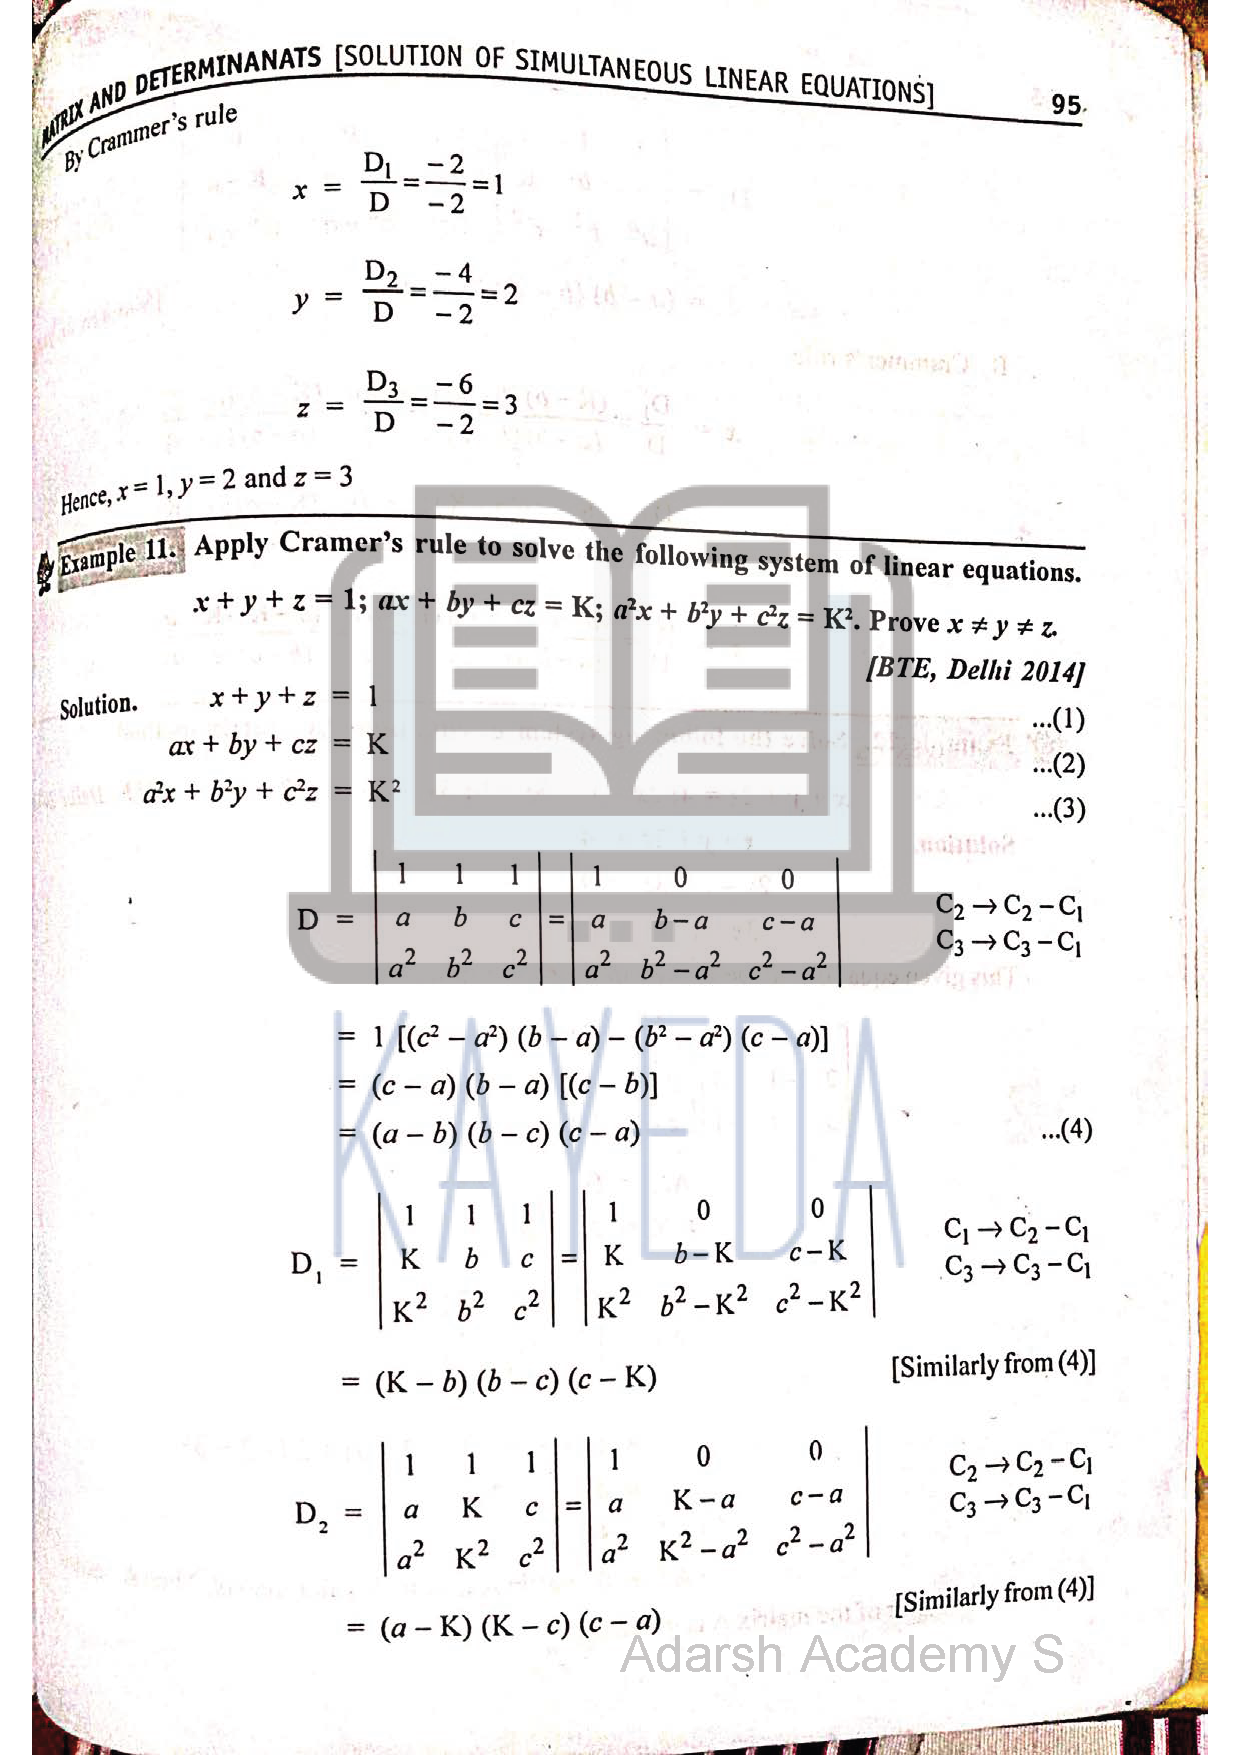 MATRIX AND DETERMINANATS [SOLUTION OF SIMULTANEOUS LINEAR EQUATIONS] 95
By Crammer's rule
x = D₁/D = -2/-2 = 1
y = D₂/D = -4/-2 = 2
z = D₃/D = -6/-2 = 3
Hence, x = 1, y = 2 and z = 3
Example 11. Apply Cramer's rule to solve the following system of linear equations.
x + y + z = 1; ax + by + cz = K; a²x + b²y + c²z = K². Prove x ≠ y ≠ z.
[BTE, Delhi 2014]
Solution. x + y + z = 1 ...(1)
ax + by + cz = K ...(2)
a²x + b²y + c²z = K² ...(3)
| 1 1 1 | | 1 0 0 |
D = | a b c | = | a b-a c-a | C₂ → C₂ - C₁
| a² b² c² | | a² b²-a² c²-a² | C₃ → C₃ - C₁
= 1 [(c² – a²) (b – a) – (b² – a²) (c – a)]
= (c – a) (b – a) [(c – b)]
= (a – b) (b – c) (c – a) ...(4)
| 1 1 1 | | 1 0 0 | C₁ → C₂ - C₁
D₁ = | K b c | = | K b-K c-K | C₃ → C₃ - C₁
| K² b² c² | | K² b²-K² c²-K² |
= (K – b) (b – c) (c – K) [Similarly from (4)]
| 1 1 1 | | 1 0 0 | C₂ → C₂ - C₁
D₂ = | a K c | = | a K-a c-a | C₃ → C₃ - C₁
| a² K² c² | | a² K²-a² c²-a² |
= (a – K) (K – c) (c – a) [Similarly from (4)]
KAYEDA
Adarsh Academy S